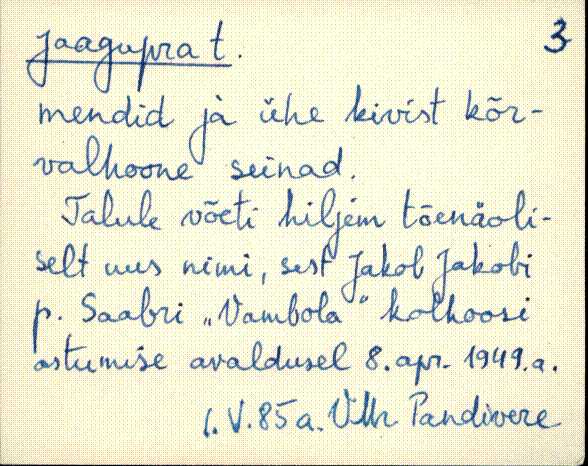 Jaagupra t. 3
mendid ja ühe kivist kõr-
valhoone seinad.
Talule võeti hiljem tõenäoli-
selt uus nimi, sest Jakob Jakobi
p. Saabri „Vambola" kolhoosi
astumise avaldusel 8. apr. 1949. a.
1. V. 85 a. VMr Pandivere